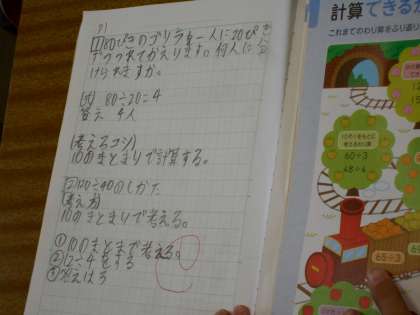 ①80ぴきのゴリラを一人に20ぴき
ずつつれてかえります。何人に
けられますか。
(式) 80÷20=4
答え 4人
(考えるコツ)
10のまとまりで計算する。
②120÷40のしかた
(考え方)
10のまとまりで考える。
①10のまとまで考える。
②12÷4をする
③答えは3
計算できるか
これまでのわり算をふり返り
10のまとまりをもとに
考えるわり算
60÷3
48÷4
65÷3